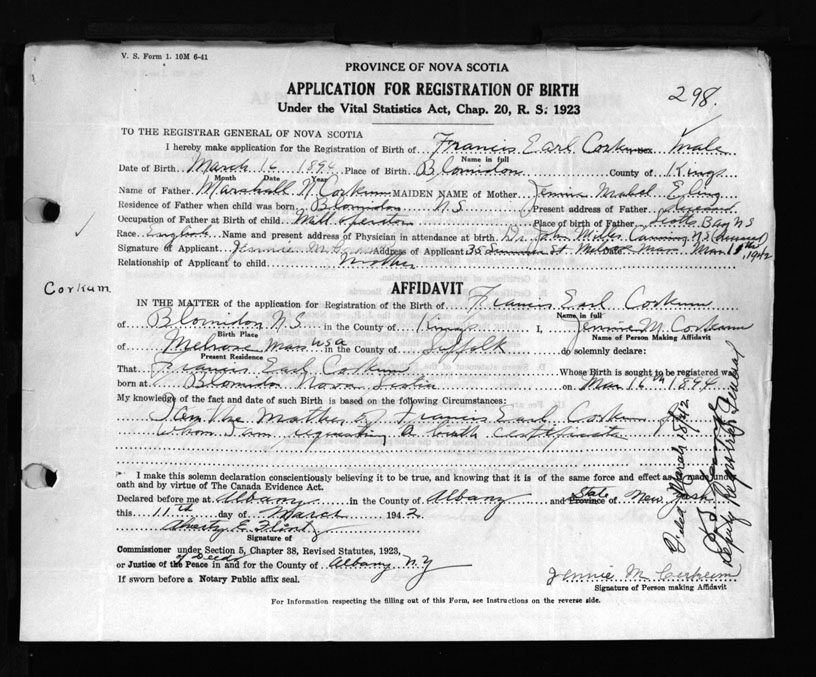 V. S. Form 1. 10M 6-41
PROVINCE OF NOVA SCOTIA
APPLICATION FOR REGISTRATION OF BIRTH
298.
Under the Vital Statistics Act, Chap. 20, R. S. 1923
TO THE REGISTRAR GENERAL OF NOVA SCOTIA
I hereby make application for the Registration of Birth of Francis Earl Corkum Male
Name in full
Date of Birth March 16 1894 Place of Birth Blomidon County of Kings
Month Date Year
Name of Father Marshall N Corkum MAIDEN NAME of Mother Jennie Mabel
Residence of Father when child was born Blomidon N S Present address of Father
Occupation of Father at Birth of child Mill operator Place of birth of Father Scotts Bay N S
Race English Name and present address of Physician in attendance at birth Dr. John Miller Canning N S
Signature of Applicant Jennie M Address of Applicant 35 St Melrose Mass Date Mar 11th, 1942
Relationship of Applicant to child mother
Corkum
AFFIDAVIT
IN THE MATTER of the application for Registration of the Birth of Francis Earl Corkum
Name in full
of Blomidon N S in the County of Kings I, Jennie M Corkum
Birth Place Name of Person Making Affidavit
of Melrose Mass USA in the County of Suffolk do solemnly declare:
Present Residence
That Francis Earl Corkum Whose Birth is sought to be registered was
born at Blomidon Nova Scotia on Mar 16th 1894
My knowledge of the fact and date of such Birth is based on the following Circumstances:
I am the Mother of Francis Earl Corkum for
whom I am requesting a birth certificate
I make this solemn declaration conscientiously believing it to be true, and knowing that it is of the same force and effect as if made under
oath and by virtue of The Canada Evidence Act.
Declared before me at Albany in the County of Albany and State Province of New York
this 11th day of March 1942
Signature of
Commissioner under Section 5, Chapter 38, Revised Statutes, 1923,
of Deeds
or Justice of the Peace in and for the County of Albany N Y
If sworn before a Notary Public affix seal.
Jennie M Corkum
Signature of Person making Affidavit
Filed March 18/42
Deputy Registrar General
For Information respecting the filling out of this Form, see Instructions on the reverse side.